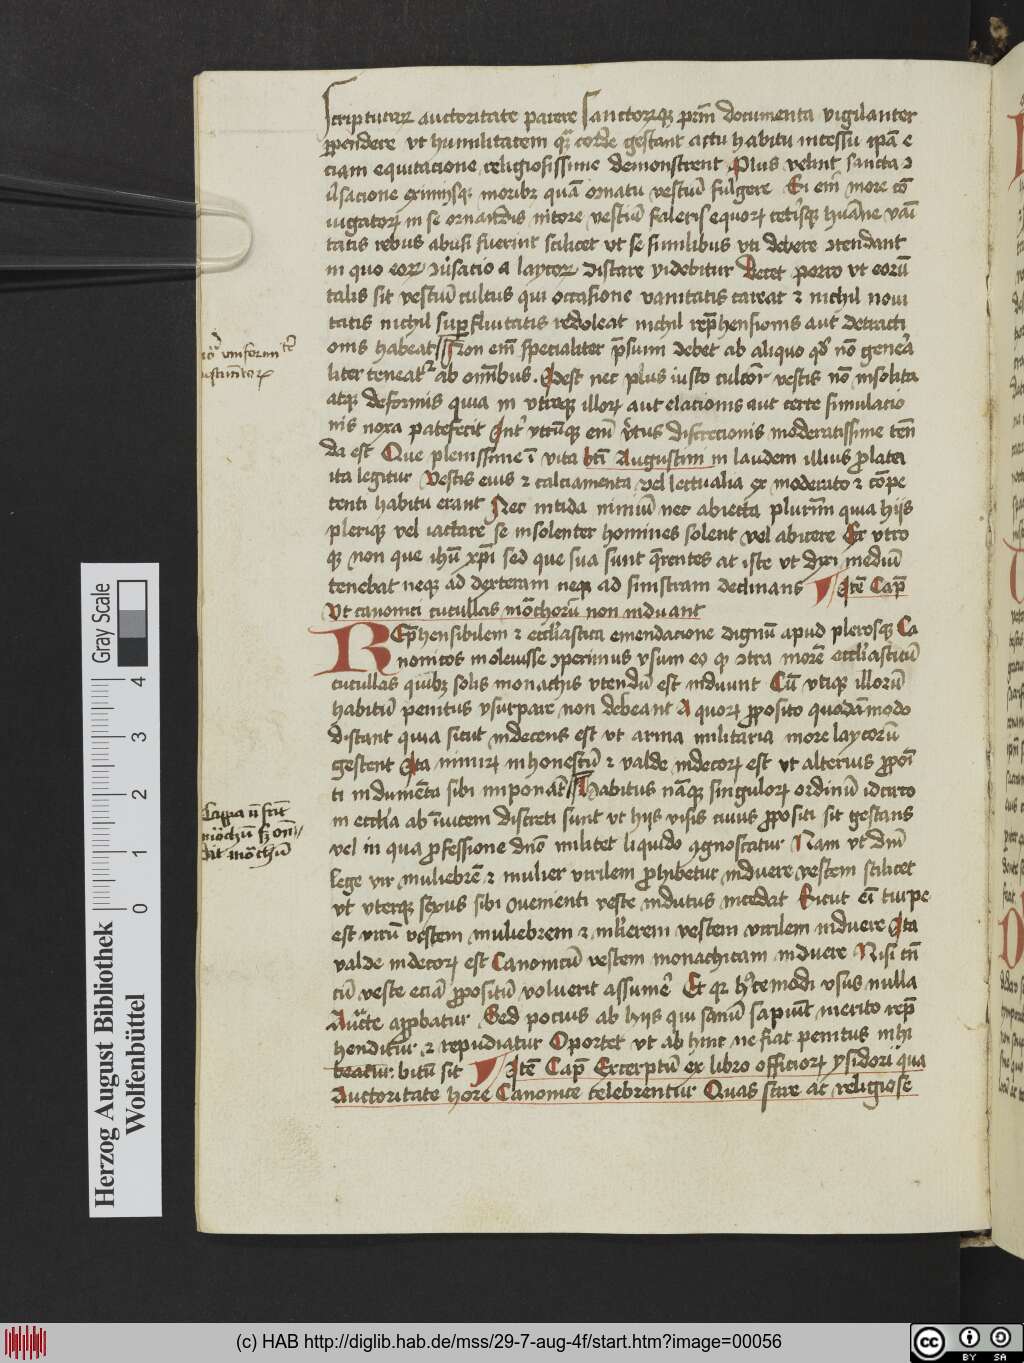 Scripturarum auctoritate parere Sanctorumque patrum documenta vigilanter
perpendere vt humilitatem quam corde gestant actu habitu incessu ipsa e
ciam equitacione religiosissime demonstrent Plus velint sancta con
uersacione eximijsque moribus quam ornatu vestium fulgere Et enim more con
iugatorum in se ornandis nitore vestium faleris equorum ceterisque humane vani
tatis rebus abusi fuerint scilicet vt se similibus vti debere contendant
in quo eorum conuersacio a laycorum distare videbitur Decet porro vt eorum
talis sit vestium cultus qui occasione vanitatis careat et nichil noui
tatis nichil superfluitatis redoleat nichil reprehensionis aut detracti
onis habeat Non enim specialiter presumi debet ab aliquo quod non genera
liter teneatur ab omnibus. Idest nec plus iusto cultior vestis non insolita
atque deformis quia in vtroque illorum aut elacionis aut certe simulacio
nis nota patefecit Inter vtrumque enim virtus discrecionis moderatissime tenen
da est Que plenissime in vita beati Augustini in laudem illius prolata
ita legitur Vestis eius et calciamenta vel lectualia ex moderato et compe
tenti habitu erant Nec nitida nimium nec abiecta plurimum quia hijs
plerique vel iactare se insolenter homines solent vel abicere Ex vtro
que non que ihesu xpristi sed que sua sunt querentes at iste vt dixi medium
tenebat neque ad dexteram neque ad sinistram declinans Item Cap
Vt canonici cucullas monachorum non induant
REprehensibilem et ecclesiastica emendacione dignum apud plerosque Ca
nonicos inoleuisse comperimus vsum eo quod contra morem ecclesiasticum
cucullas quibus solis monachis vtendum est induunt Cum vtique illorum
habitum penitus vsurpare non debeant A quorum proposito quodammodo
distant quia sicut indecens est vt arma militaria more laycorum
gestent Ita nimirum inhonestum et valde indecorum est vt alterius proposi
ti indumenta sibi imponant Habitus namque singulorum ordinum idcirco
in ecclesia ab inuicem discreti sunt vt hijs visis cuius propositi sit gestans
vel in qua professione domino militet liquido cognoscatur Nam vt diuini
lege vir muliebrem et mulier virilem prohibetur induere vestem scilicet
vt vterque sexus sibi conuenienti veste indutus incedat Sicut enim turpe
est virum vestem muliebrem et mulierem vestem virilem induere Ita
valde indecorum est Canonicum vestem monachicam induere Nisi cum
cum veste eciam propositum voluerit assumere Et quia huiuscemodi vsus nulla
Auctoritate approbatur Sed pocius ab hijs qui sanum sapiunt merito repre
henditur et repudiatur Oportet vt ab hinc ne fiat penitus inhi
beatur bitum sit Item Cap Excerptum ex libro officiorum ysidori qua
Auctoritate hore Canonice celebrentur Quas stare ac religiose
vniformitate
vestimentorum
Cappa non sunt
monachum sed
monachum
Herzog August Bibliothek
Wolfenbüttel
0 1 2 3 4
Gray Scale
(c) HAB http://diglib.hab.de/mss/29-7-aug-4f/start.htm?image=00056
cc BY SA